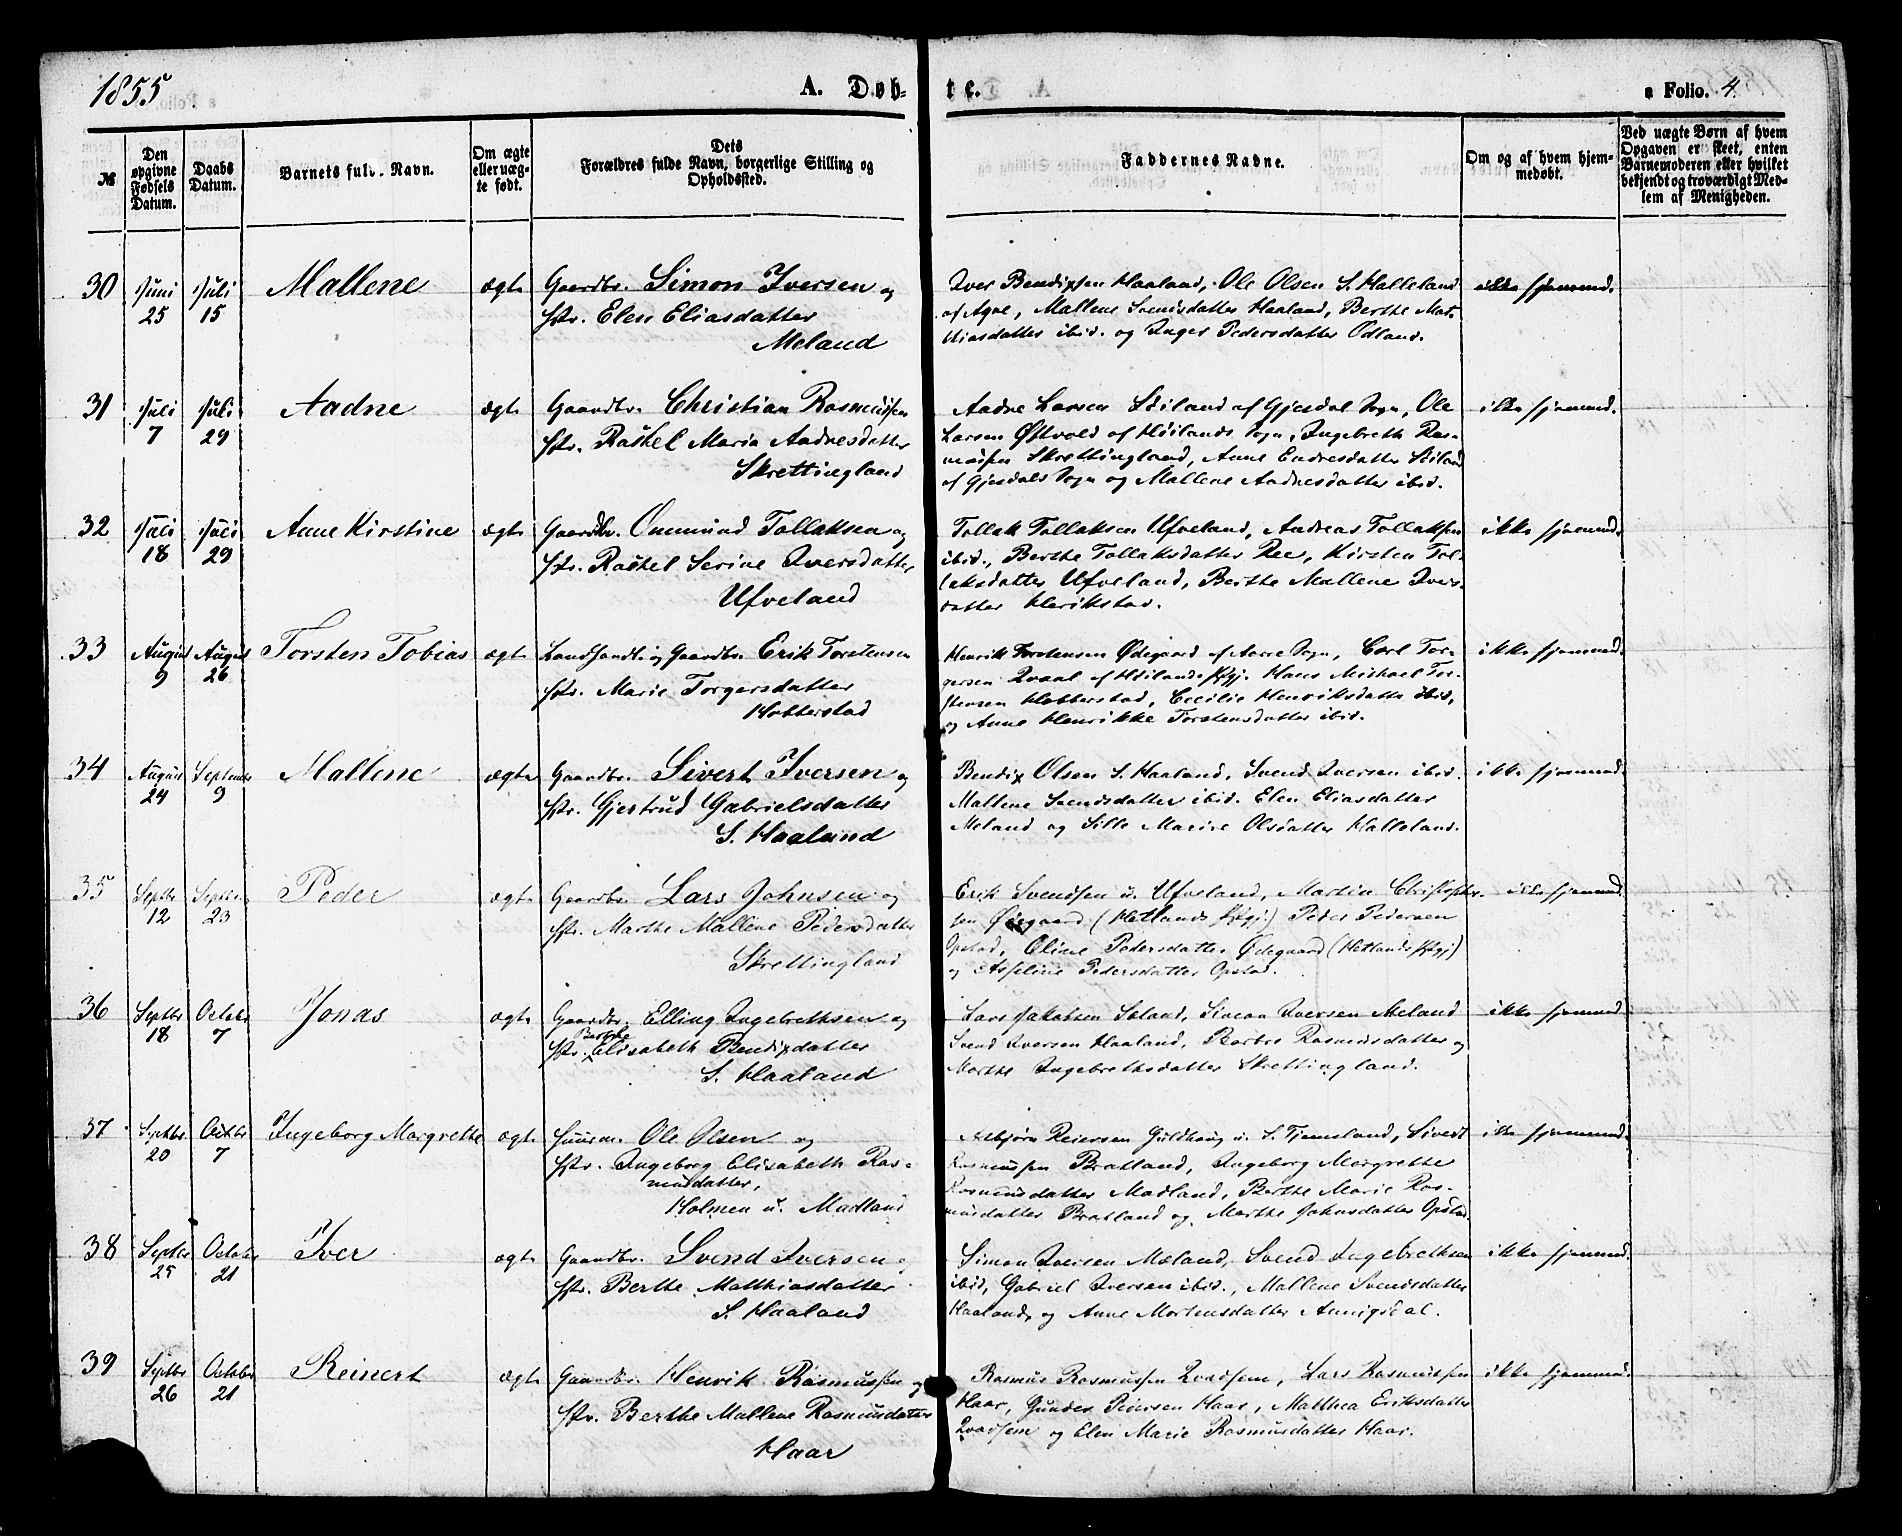 1855
A. Døb-
te.
a Folio. 4.
№
Den opgivne Fødsels Datum.
Daabs Datum.
Barnets fulde Navn.
Om ægte eller uægte født.
Dets Forældres fulde Navn, borgerlige Stilling og Opholdssted.
Faddernes Navne.
Om og af hvem hjemmedøbt.
Ved uægte Børn af hvem Opgaven er skeet, enten Barnemoderen eller hvilket bekjendt og troværdigt Medlem af Menigheden.
30 Juni 25 Juli 15 Mallene ægte Gaardbr. Simon Iversen og
Hstr. Elen Eliasdatter
Meland
Iver Bendixsen Haaland, Ole Olsen S. Halleland
af Ogne, Mallene Svendsdatter Haaland, Berthe Mat-
thiasdatter ibid. og Inger Pedersdatter Odland.
ikke hjemmed.
31 Juli 7 Juli 29 Aadne ægte Gaardbr. Christian Rasmussen
Hstr. Rachel Maria Aadnesdatter
Skrettingland
Aadne Larsen af Gjesdal Sogn, Ole
Larsen Østvold af Høilands Sogn, Ingebreth Ras-
mussen Skrettingland, Anne Endresdatter
af Gjesdals Sogn og Mallene Aadnesdatter ibid.
ikke hjemmed.
32 Juli 18 Juli 29 Anne Kirstine ægte Gaardbr. Ommund Tollaksen og
Hstr. Rachel Serine Iversdatter
Ufveland
Tollak Tollaksen Ufveland, Andreas Tollaksen
ibid., Berthe Tollaksdatter Ree, Kirsten Tol-
laksdatter Ufveland, Berthe Mallene Ivers-
datter Herikstad.
ikke hjemmed.
33 August 9 August 26 Torsten Tobias ægte Landhandl. og Gaardbr. Erik Torstensen
Hstr. Marie Torgersdatter
Hobberstad
Henrik Torstensen Ødegaard af Aarre Sogn, Carl Tor-
gersen Qvaal af Høilands Prgj. Hans Michael Tor-
stensen Hobberstad, Cecilie Henriksdatter ibid,
og Anne Henrikke Torstensdatter ibid.
ikke hjemmed.
34 August 24 September 9 Mallene ægte Gaardbr. Sivert Iversen og
Hstr. Gjertrud Gabrielsdatter
S. Haaland
Bendix Olsen S. Haaland, Svend Iversen ibid.
Mallene Svendsdatter ibid. Elen Eliasdatter
Meland og Sille Marine Olsdatter Halleland.
ikke hjemmed.
35 Septbr 12 Septbr 23 Peder ægte Gaardbr. Lars Johnsen og
Hstr. Marthe Mallene Pedersdatter
Skrettingland
Erik Svendsen u. Ufveland, Martin Christophers-
sen Ødegaard (Hetlands Prgj) Peder Pedersen
Opstad, Oline Pedersdatter Ødegaard (Hetlands Prgj)
og Asseline Pedersdatter Opstad.
ikke hjemmed.
36 Septbr 18 October 7 Jonas ægte Gaardbr. Elling Ingebrethsen og
Berthe
Hstr. Elisabeth Bendixdatter
S. Haaland
Lars Jakobsen Soland, Simon Iversen Meland
Svend Iversen Haaland, Barbro Rasmusdatter og
Marthe Ingebrethsdatter Skrettingland.
ikke hjemmed.
37 Septbr 20 Octbr 7 Ingeborg Margrethe ægte Huusm. Ole Olsen og
Hstr. Ingeborg Elisabeth Ras-
musdatter,
Holmen u. Madland
Asbjørn Reiersen Guldhaug u. S. Tjemsland, Sivert
Rasmussen Bratland, Ingeborg Margrethe
Rasmusdatter Madland, Berthe Marie Ras-
musdatter Bratland og Marthe Johnsdatter Opstad
ikke hjemmed.
38 Septbr 25 October 21 Iver ægte Gaardbr. Svend Iversen og
Hstr. Berthe Matthiasdatter
S. Haaland
Simon Iversen Meland, Svend Ingebrethsen
ibid, Gabriel Iversen ibid., Mallene Svendsdatter
Haaland, og Anne Mortensdatter
ikke hjemmed.
39 Septbr 26 October 21 Reinert ægte Gaardbr. Henrik Rasmussen og
Hstr. Berthe Mallene Rasmusdatter
Haar
Rasmus Rasmussen Qvadsem, Lars Rasmussen
Haar, Gunder Pedersen Haar, Matthea Eriksdatter
Qvadsem og Elen Marie Rasmusdatter Haar.
ikke hjemmed.